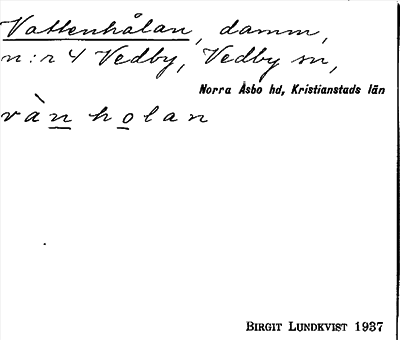 Vattenhålan, damm,
n:r 4 Vedby, Vedby sn,
Norra Åsbo hd, Kristianstads län
vàn holan
BIRGIT LUNDKVIST 1937